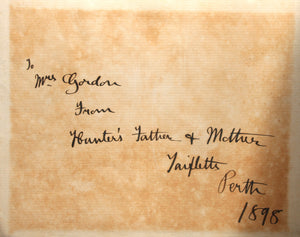 To
Mrs Gordon
From
Hunter's Father & Mother
Perth
1898